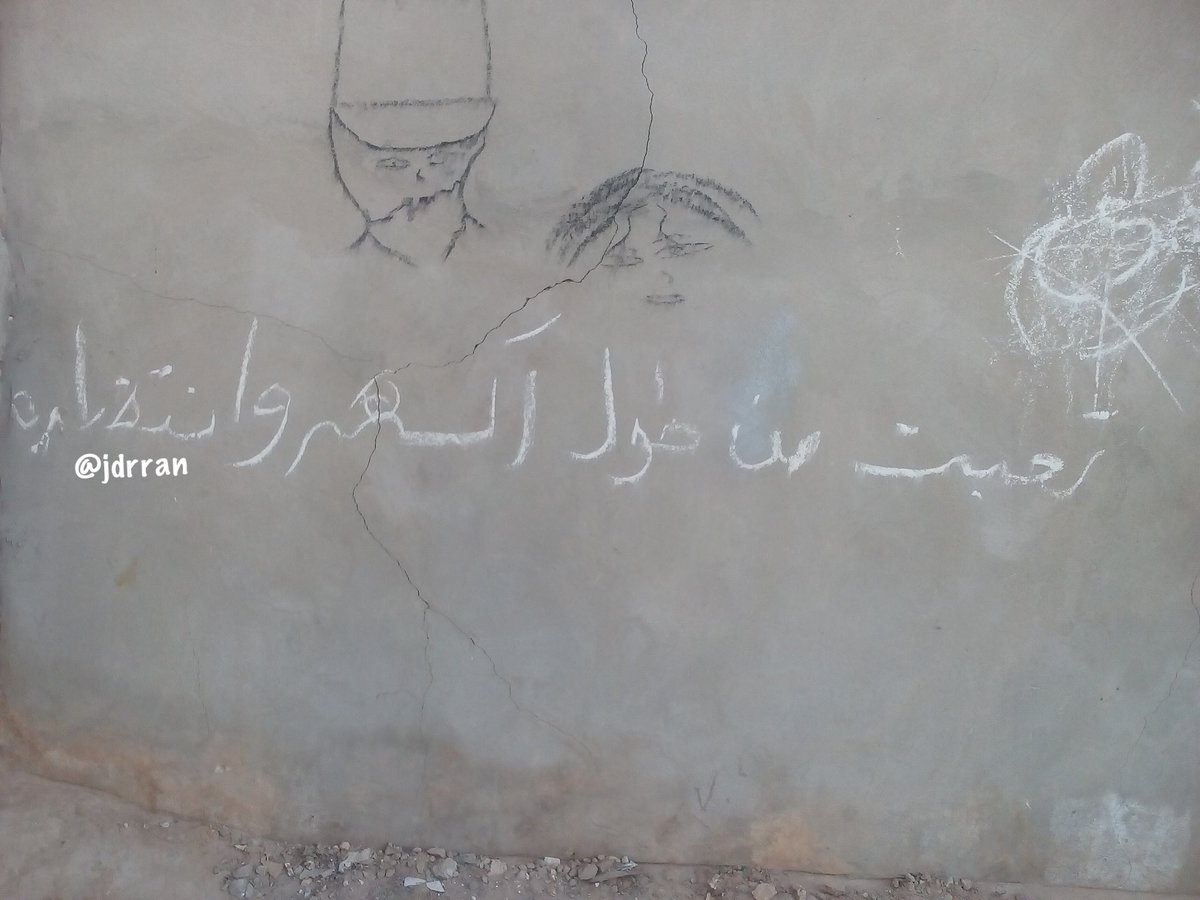 تعبت من طول آلسهر وانتظاريه
@jdrran